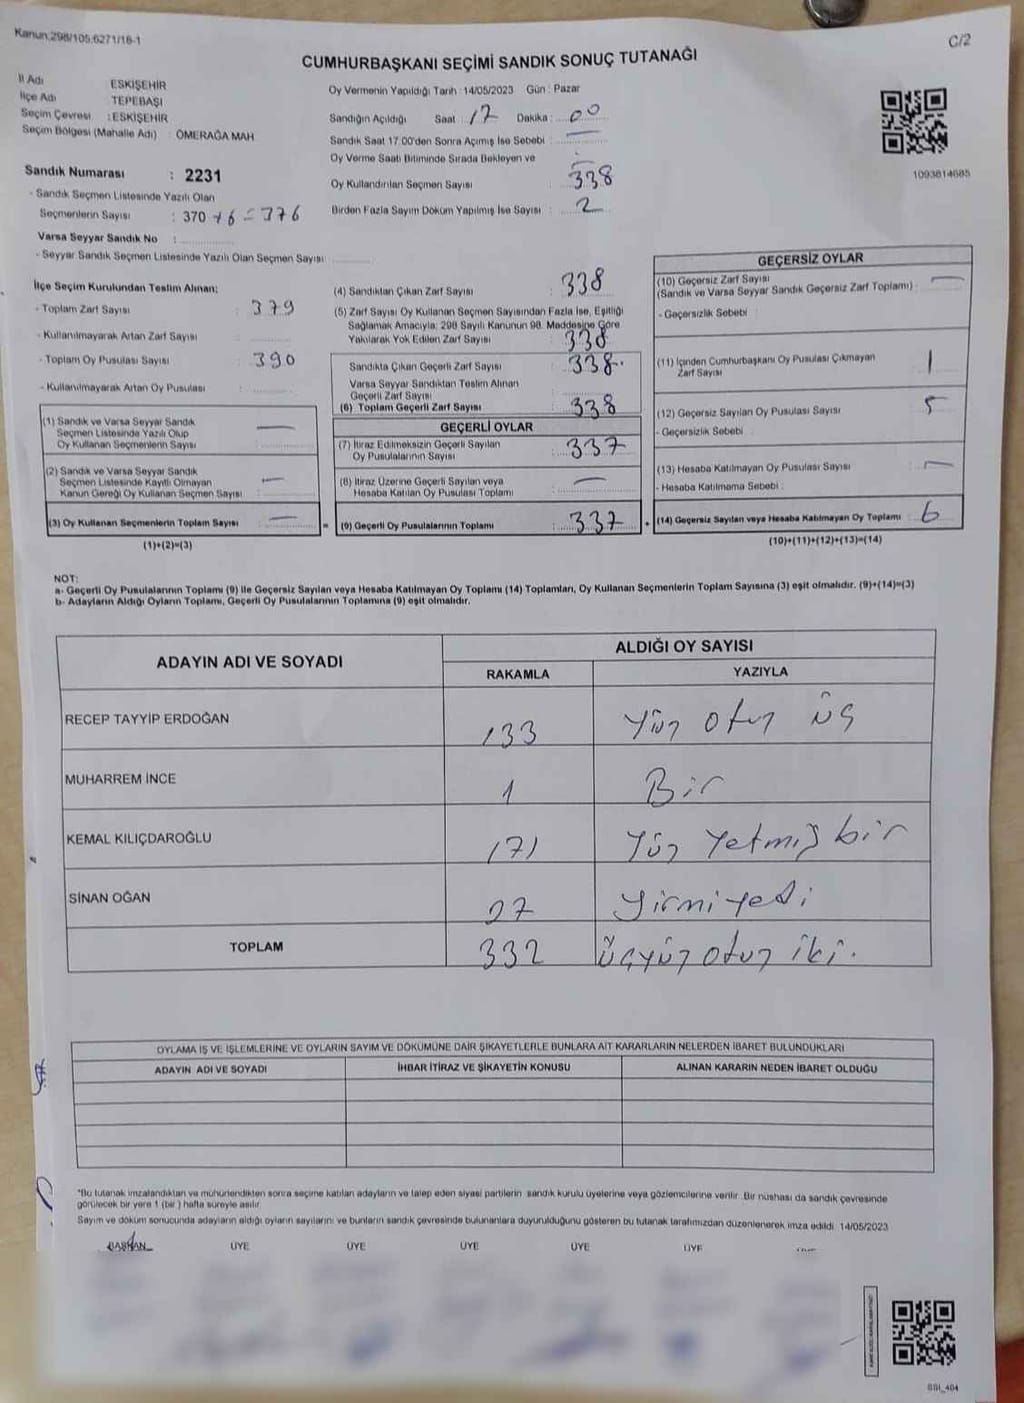 Kanun:298/105,6271/16-1
C/2
CUMHURBAŞKANI SEÇİMİ SANDIK SONUÇ TUTANAĞI
İl Adı ESKİŞEHİR
İlçe Adı TEPEBAŞI
Seçim Çevresi : ESKİŞEHİR
Seçim Bölgesi (Mahalle Adı) : ÖMERAĞA MAH
Sandık Numarası : 2231
- Sandık Seçmen Listesinde Yazılı Olan
Seçmenlerin Sayısı : 370 + 6 = 376
Varsa Seyyar Sandık No :
- Seyyar Sandık Seçmen Listesinde Yazılı Olan Seçmen Sayısı:
Oy Vermenin Yapıldığı Tarih :14/05/2023 Gün : Pazar
Sandığın Açıldığı Saat : 17 Dakika : 00
Sandık Saat 17:00'den Sonra Açımış İse Sebebi : —
Oy Verme Saati Bitiminde Sırada Bekleyen ve
Oy Kullandırılan Seçmen Sayısı : 338
Birden Fazla Sayım Döküm Yapılmış İse Sayısı : 2
1093814685
İlçe Seçim Kurulundan Teslim Alınan:
- Toplam Zarf Sayısı : 379
- Kullanılmayarak Artan Zarf Sayısı :
- Toplam Oy Pusulası Sayısı : 390
- Kullanılmayarak Artan Oy Pusulası :
(1) Sandık ve Varsa Seyyar Sandık
Seçmen Listesinde Yazılı Olup
Oy Kullanan Seçmenlerin Sayısı : —
(2) Sandık ve Varsa Seyyar Sandık
Seçmen Listesinde Kayıtlı Olmayan
Kanun Gereği Oy Kullanan Seçmen Sayısı : —
(3) Oy Kullanan Seçmenlerin Toplam Sayısı : —
(1)+(2)=(3)
(4) Sandıktan Çıkan Zarf Sayısı : 338
(5) Zarf Sayısı Oy Kullanan Seçmen Sayısından Fazla İse, Eşitliği
Sağlamak Amacıyla; 298 Sayılı Kanunun 98. Maddesine Göre
Yakılarak Yok Edilen Zarf Sayısı : 338
Sandıkta Çıkan Geçerli Zarf Sayısı : 338.
Varsa Seyyar Sandıktan Teslim Alınan
Geçerli Zarf Sayısı
(6) Toplam Geçerli Zarf Sayısı : 338
GEÇERLİ OYLAR
(7) İtiraz Edilmeksizin Geçerli Sayılan
Oy Pusulalarının Sayısı : 337
(8) İtiraz Üzerine Geçerli Sayılan veya
Hesaba Katılan Oy Pusulası Toplamı : —
= (9) Geçerli Oy Pusulalarının Toplamı : 337
GEÇERSİZ OYLAR
(10) Geçersiz Zarf Sayısı
(Sandık ve Varsa Seyyar Sandık Geçersiz Zarf Toplamı) : —
- Geçersizlik Sebebi :
(11) İçinden Cumhurbaşkanı Oy Pusulası Çıkmayan
Zarf Sayısı : 1
(12) Geçersiz Sayılan Oy Pusulası Sayısı : 5
- Geçersizlik Sebebi :
(13) Hesaba Katılmayan Oy Pusulası Sayısı : —
- Hesaba Katılmama Sebebi :
+ (14) Geçersiz Sayılan veya Hesaba Katılmayan Oy Toplamı : 6
(10)+(11)+(12)+(13)=(14)
NOT:
a- Geçerli Oy Pusulalarının Toplamı (9) ile Geçersiz Sayılan veya Hesaba Katılmayan Oy Toplamı (14) Toplamları, Oy Kullanan Seçmenlerin Toplam Sayısına (3) eşit olmalıdır. (9)+(14)=(3)
b- Adayların Aldığı Oyların Toplamı, Geçerli Oy Pusulalarının Toplamına (9) eşit olmalıdır.
ADAYIN ADI VE SOYADI ALDIĞI OY SAYISI
RAKAMLA YAZIYLA
RECEP TAYYİP ERDOĞAN 133 Yüz otuz üç
MUHARREM İNCE 1 Bir
KEMAL KILIÇDAROĞLU 171 Yüz Yetmiş bir
SİNAN OĞAN 27 Yirmi yedi
TOPLAM 332 üçyüz otuz iki.
OYLAMA İŞ VE İŞLEMLERİNE VE OYLARIN SAYIM VE DÖKÜMÜNE DAİR ŞİKAYETLERLE BUNLARA AİT KARARLARIN NELERDEN İBARET BULUNDUKLARI
ADAYIN ADI VE SOYADI İHBAR İTİRAZ VE ŞİKAYETİN KONUSU ALINAN KARARIN NEDEN İBARET OLDUĞU
*Bu tutanak imzalandıktan ve mühürlendikten sonra seçime katılan adayların ve talep eden siyasi partilerin sandık kurulu üyelerine veya gözlemcilerine verilir. Bir nüshası da sandık çevresinde
görülecek bir yere 1 (bir) hafta süreyle asılır.
Sayım ve döküm sonucunda adayların aldığı oyların sayılarını ve bunların sandık çevresinde bulunanlara duyurulduğunu gösteren bu tutanak tarafımızdan düzenlenerek imza edildi. 14/05/2023
BAŞKAN ÜYE ÜYE ÜYE ÜYE ÜYE